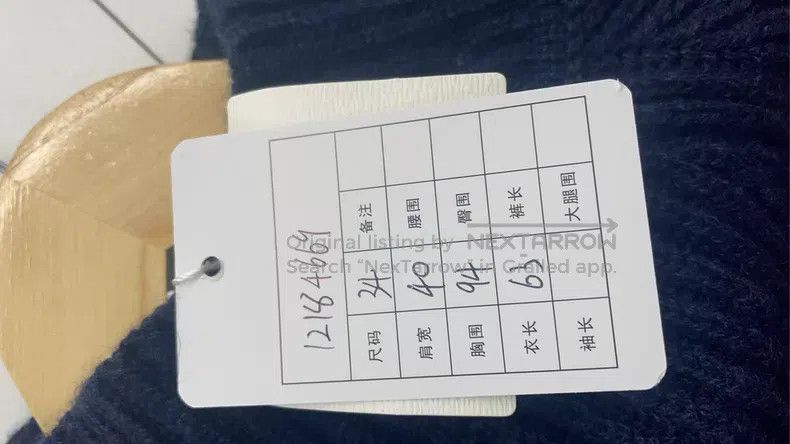 尺码 34 备注
肩宽 40 腰围
胸围 94 臀围
衣长 63 裤长
袖长 大腿围
Original listing by NEXTARROW
Search “NexTarrow” in Grailed app.